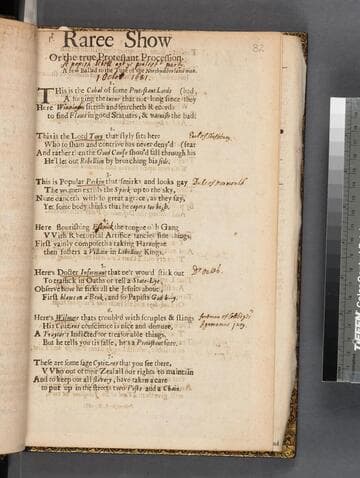 Raree Show
82
Or the true Protestant Procession.
A new Ballad to the Tune of the Northumberland man.
1 Octob. 1681.
This is the Cabal of some Protestant Lords
A forging the that not long since they
Here Winnington search and searcheth Records
to find Flaws in good Statutes, & the bad:
2.
This is the Lord Tony that slyly sits here
Who to sham and contrive has never deny'd
And rather then the Good Cause should fall through his fear
He'l let out Rebellion by broaching his side.
3.
This is Popular Perkin that smirks and looks gay
The women extoll the Spark up to the sky,
None danceth with so great a grace, as they say,
Yet some body thinks that he capers too high.
Here flourishing the tongue o'th Gang
VVith Rhetorical Artifice fancies fine things,
First vainly composeth a taking Harangue
then fosters a Villain in Libelling Kings.
Here's Doctor Informant that ne'r wou'd stick out
To traffick in Oaths or tell a State-Lye,
Observe how he firks all the Jesuits about,
First Hangs on a Book, and so Papists God b'wy.
6.
Here's Wilmer that troubl'd with scruples & stings
His Citizens conscience is nice and demure,
A Traytor's Indicted for treasonable things,
But he tells you its false, he's a Protestant sure.
7.
These are some sage Cytizens that you see there,
VVho out of their Zeal all our rights to maintain
And to keep out all slavery, have taken care
to put up in the streets two Posts and a Chain.